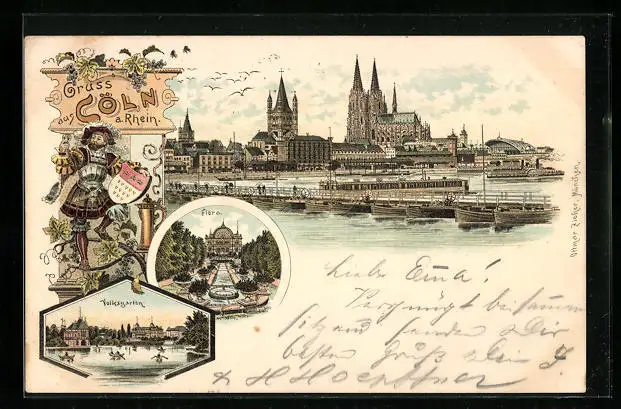 Gruss
aus CÖLN
a. Rhein.
Flora.
Volksgarten.
Ottmar Zieher, München.
Liebe Emma!
Vergnügt beisammen
sitzend senden Dir
besten Gruß Dein
& H